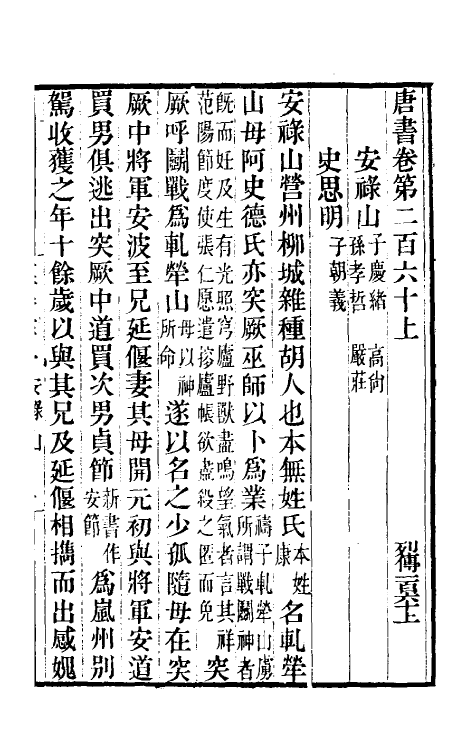 唐書卷第二百六十上
安祿山 子慶緒 高尚
孫孝哲 嚴莊
史思明 子朝義
安祿山營州柳城雜種胡人也本無姓氏 本姓康 名軋犖
山母阿史德氏亦突厥巫師以卜爲業 禱子軋犖山虜所謂戰鬭神者
旣而妊及生有光照穹廬野獸盡鳴望氣者言其祥范陽節度使張仁愿遣搜廬帳欲盡殺之匿而免 突
厥呼鬭戰爲軋犖山 母以神所命 遂以名之少孤隨母在突
厥中將軍安波至兄延偃妻其母開元初與將軍安道
買男俱逃出突厥中道買次男貞節 新書作安節 爲嵐州別
駕收獲之年十餘歲以與其兄及延偃相攜而出感媿